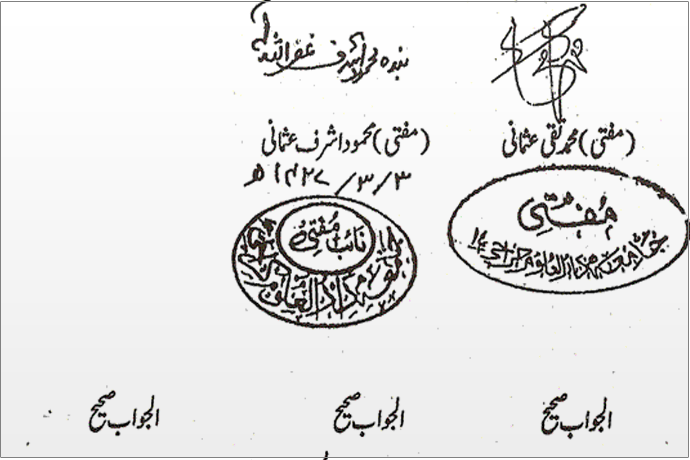 بندہ محمود اشرف غفر اللہ لہ
(مفتی) محمد تقی عثمانی
(مفتی) محمود اشرف عثمانی
۳/۳/۱۴۲۷ھ
مفتی
جامعہ دارالعلوم کراچی ۱۴
نائب مفتی
جامعہ دارالعلوم کراچی
الجواب صحیح
الجواب صحیح
الجواب صحیح